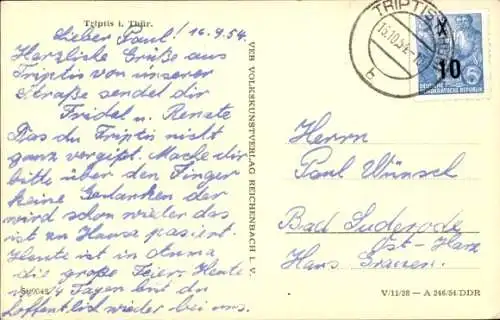 Triptis i. Thür.
Lieber Paul! 16.9.54.
Herzliche Grüße aus
Triptis von unserer
Straße sendel dir
Fridel u. Renate
Das du Triptis nicht
ganz vergißt. Mache dir
bitte über den Finger
keine Gedanken der
wird schon wieder das
ist zu Hause pasiert.
Heute ist in
die große Feier. Heute
in 4 Tagen bist du
hoffentlich wieder bei uns.
VEB VOLKSKUNSTVERLAG REICHENBACH I. V.
TRIPTIS
15.10.54
b
X
10
DEUTSCHE
DEMOKRATISCHE REPUBLIK
5
Herrn
Paul Wünsch
Bad Suderode
Ost-Harz
Haus
V/11/28 — A 246/54/DDR